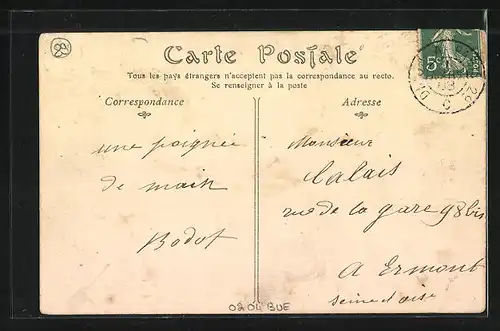 29
Carte Postale
5c
Tous les pays étrangers n'acceptent pas la correspondance au recto.
Se renseigner à la poste
Correspondance
Adresse
une poignée
de main
Bodot
Monsieur
Calais
rue de la gare 98 bis
A Ermont
Seine et oise
02 04 BUE